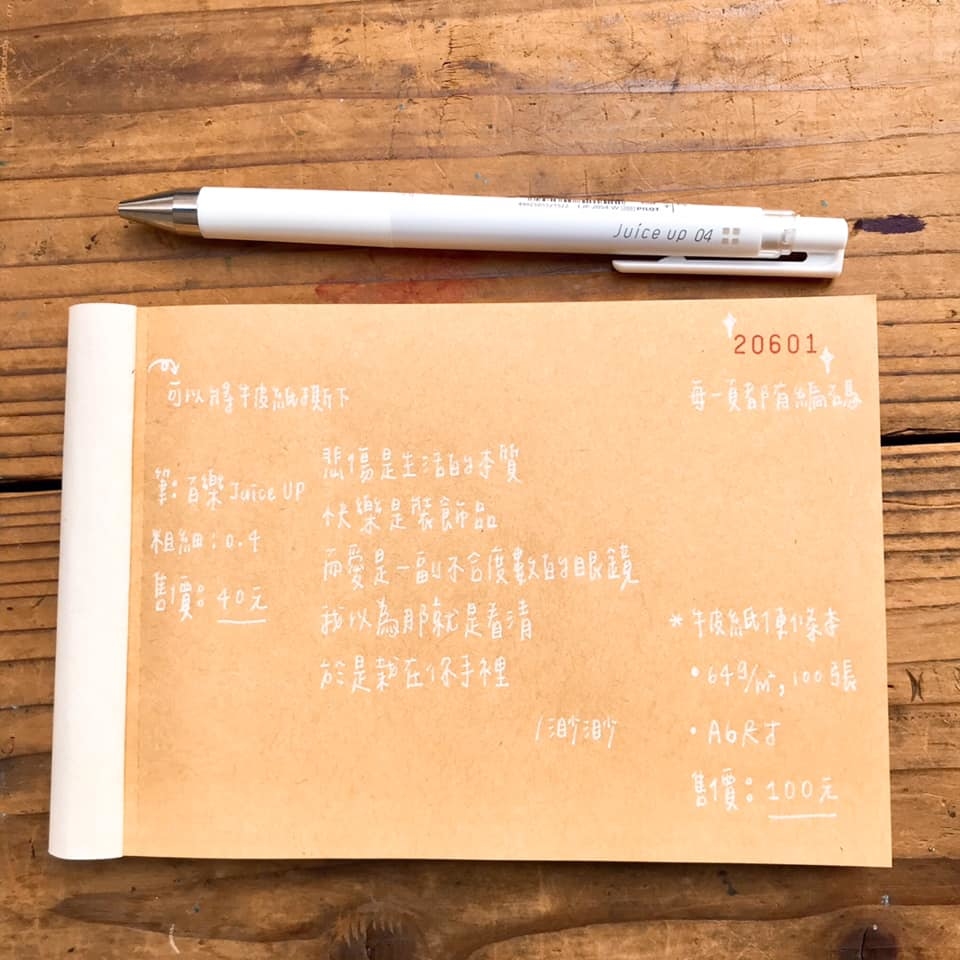 PILOT
Juice up 04
20601
可以將牛皮紙撕下
每一頁都有編碼
悲傷是生活的本質
快樂是裝飾品
而愛是一副不合度數的眼鏡
我以為那就是看清
於是栽在你手裡
/渺渺
筆：百樂 Juice UP
粗細：0.4
售價：40元
*牛皮紙便條本
•64g/㎡, 100張
•A6尺寸
售價：100元